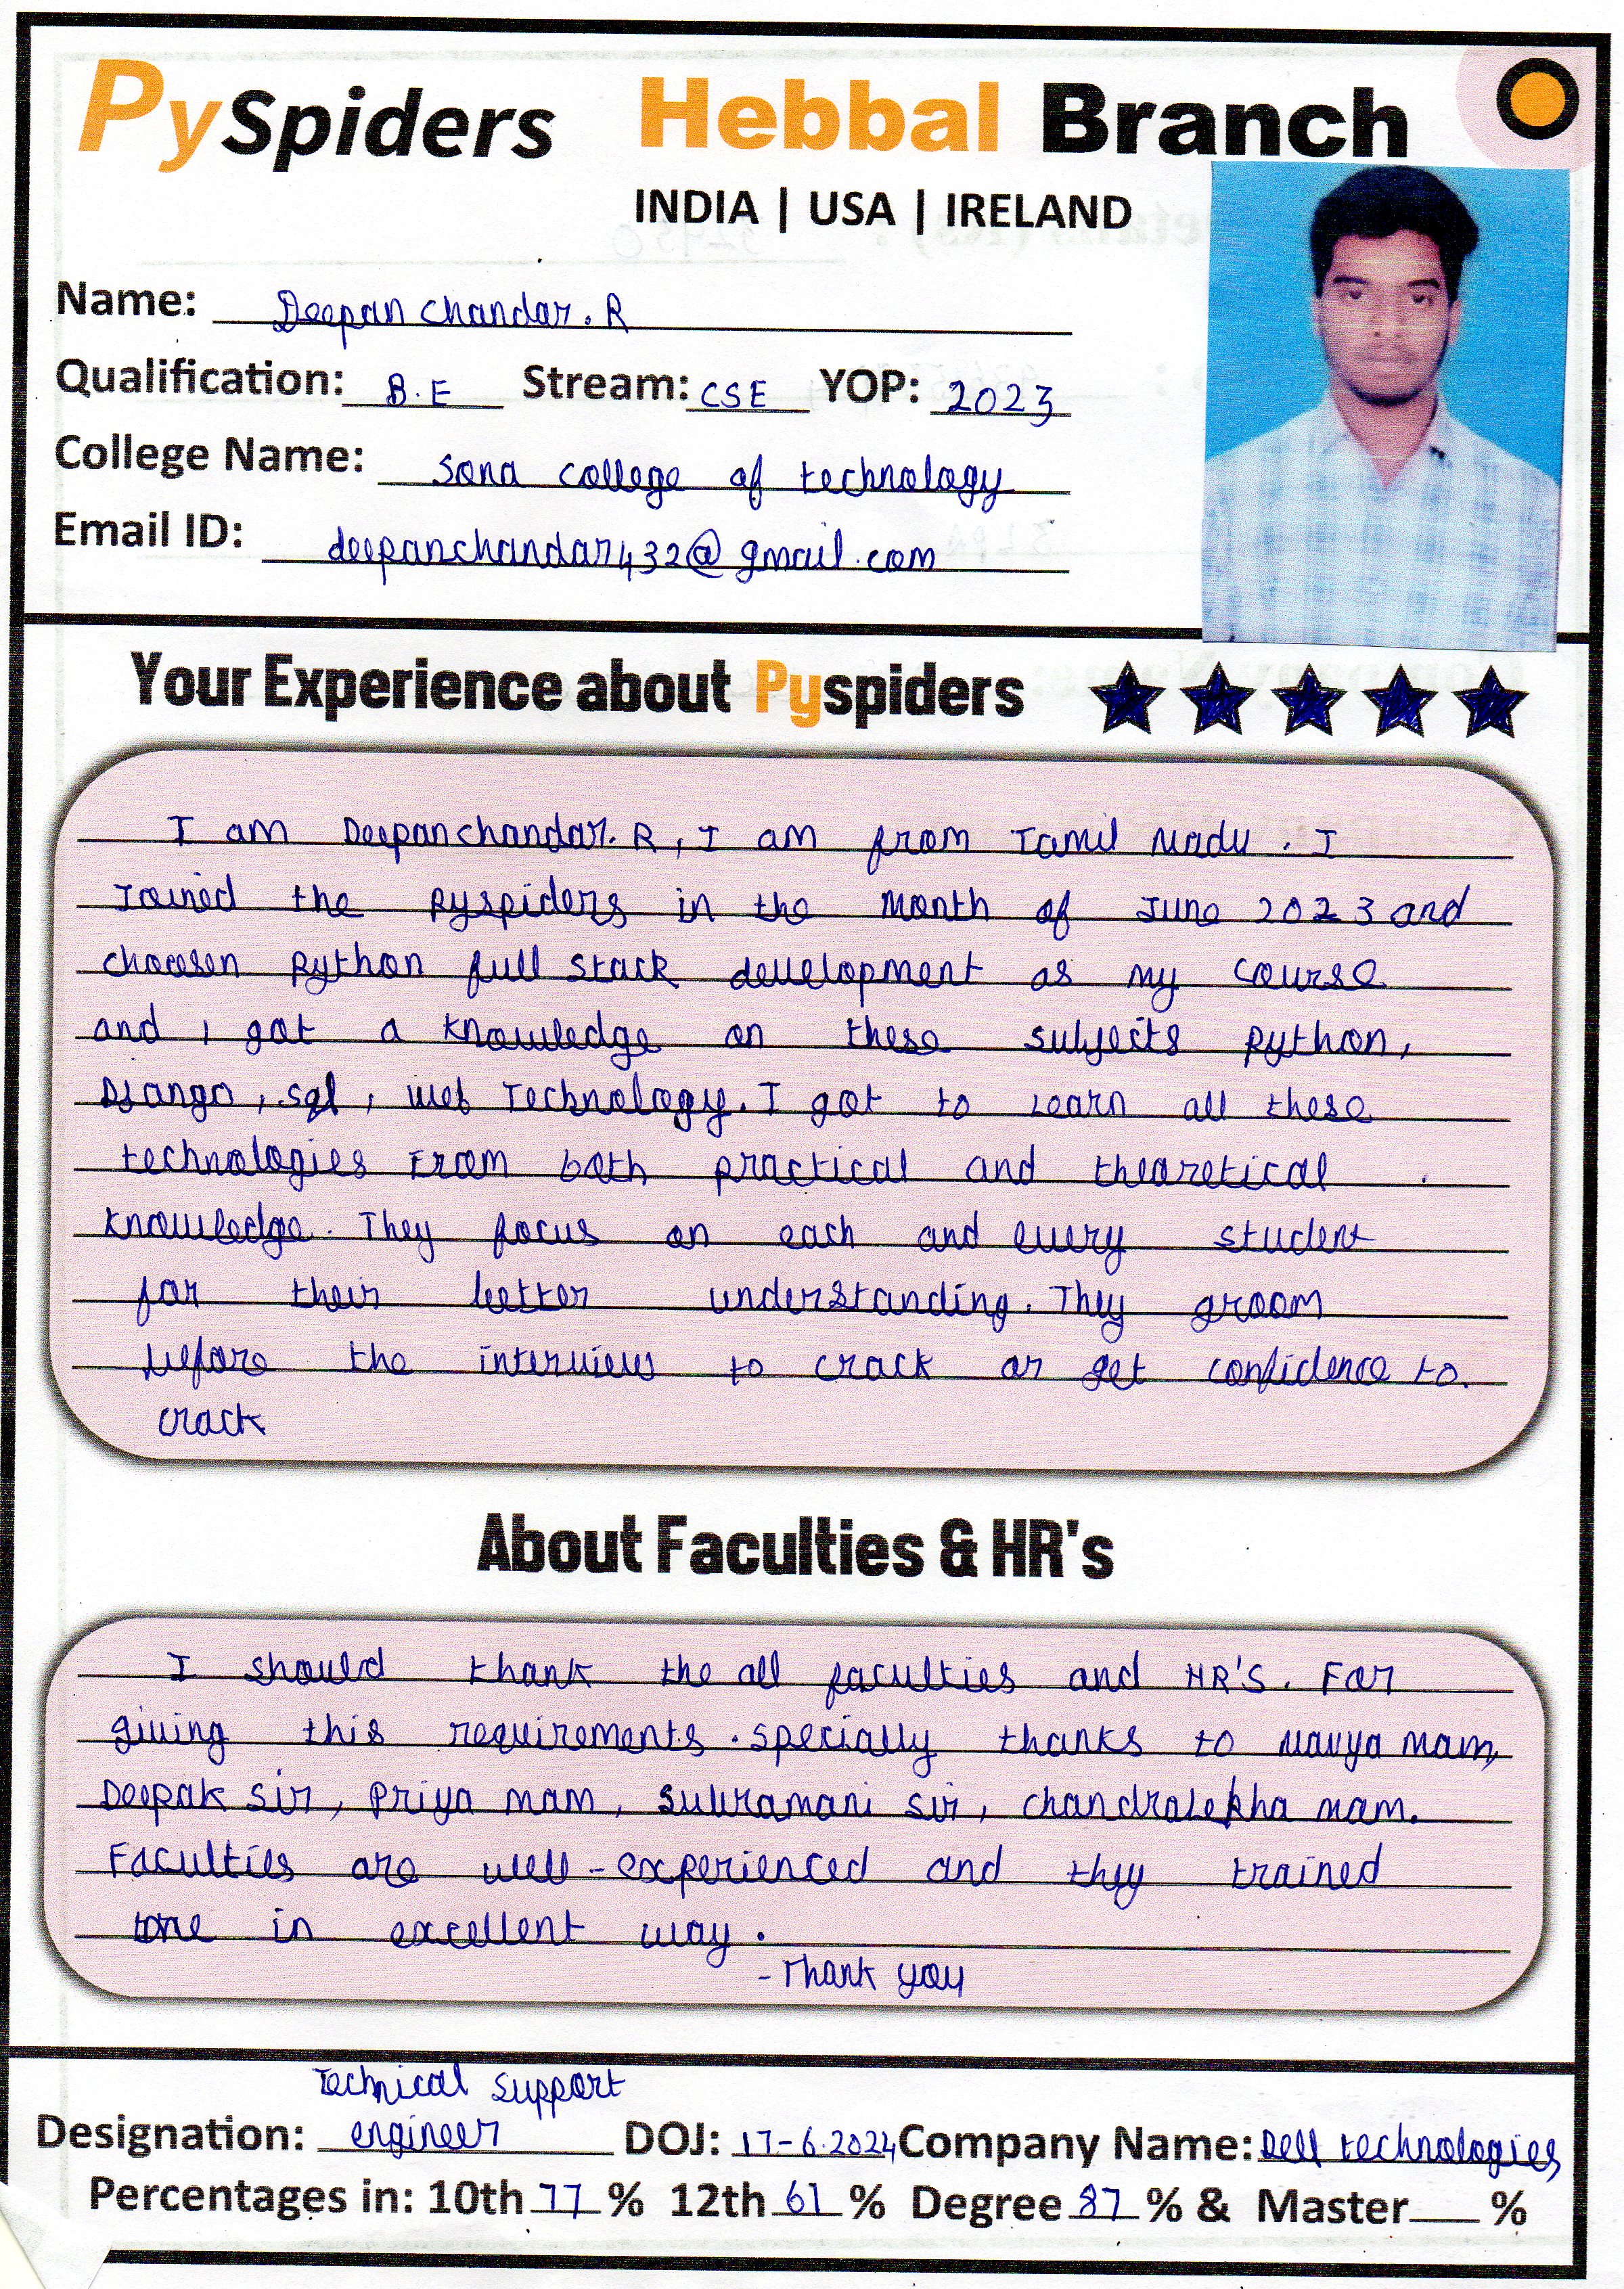 PySpiders Hebbal Branch
INDIA | USA | IRELAND
Name: Deepan chandar.R
Qualification: B.E Stream: CSE YOP: 2023
College Name: Sona college of technology
Email ID: deepanchandar432@gmail.com
Your Experience about Pyspiders
I am Deepanchandar.R, I am from Tamil Nadu. I
Joined the Pyspiders in the Month of June 2023 and
choosen Python full stack development as my course
and I got a knowledge on these subjects Python,
Django, sql, web Technology. I got to Learn all these
technologies From both practical and theoretical
knowledge. They focus on each and every student
for their better understanding. They groom
before the interviews to crack or get confidence to.
crack
About Faculties & HR's
I should thank the all faculties and HR'S. For
giving this requirements. specially thanks to Navya mam,
Deepak sir, Priya mam, Subramani sir, chandralekha mam.
Faculties are well-experienced and they trained
in excellent way.
- Thank you
Technical Support
Designation: engineer DOJ: 17-6.2024 Company Name: Dell technologies
Percentages in: 10th 77 % 12th 61 % Degree 87 % & Master ___ %